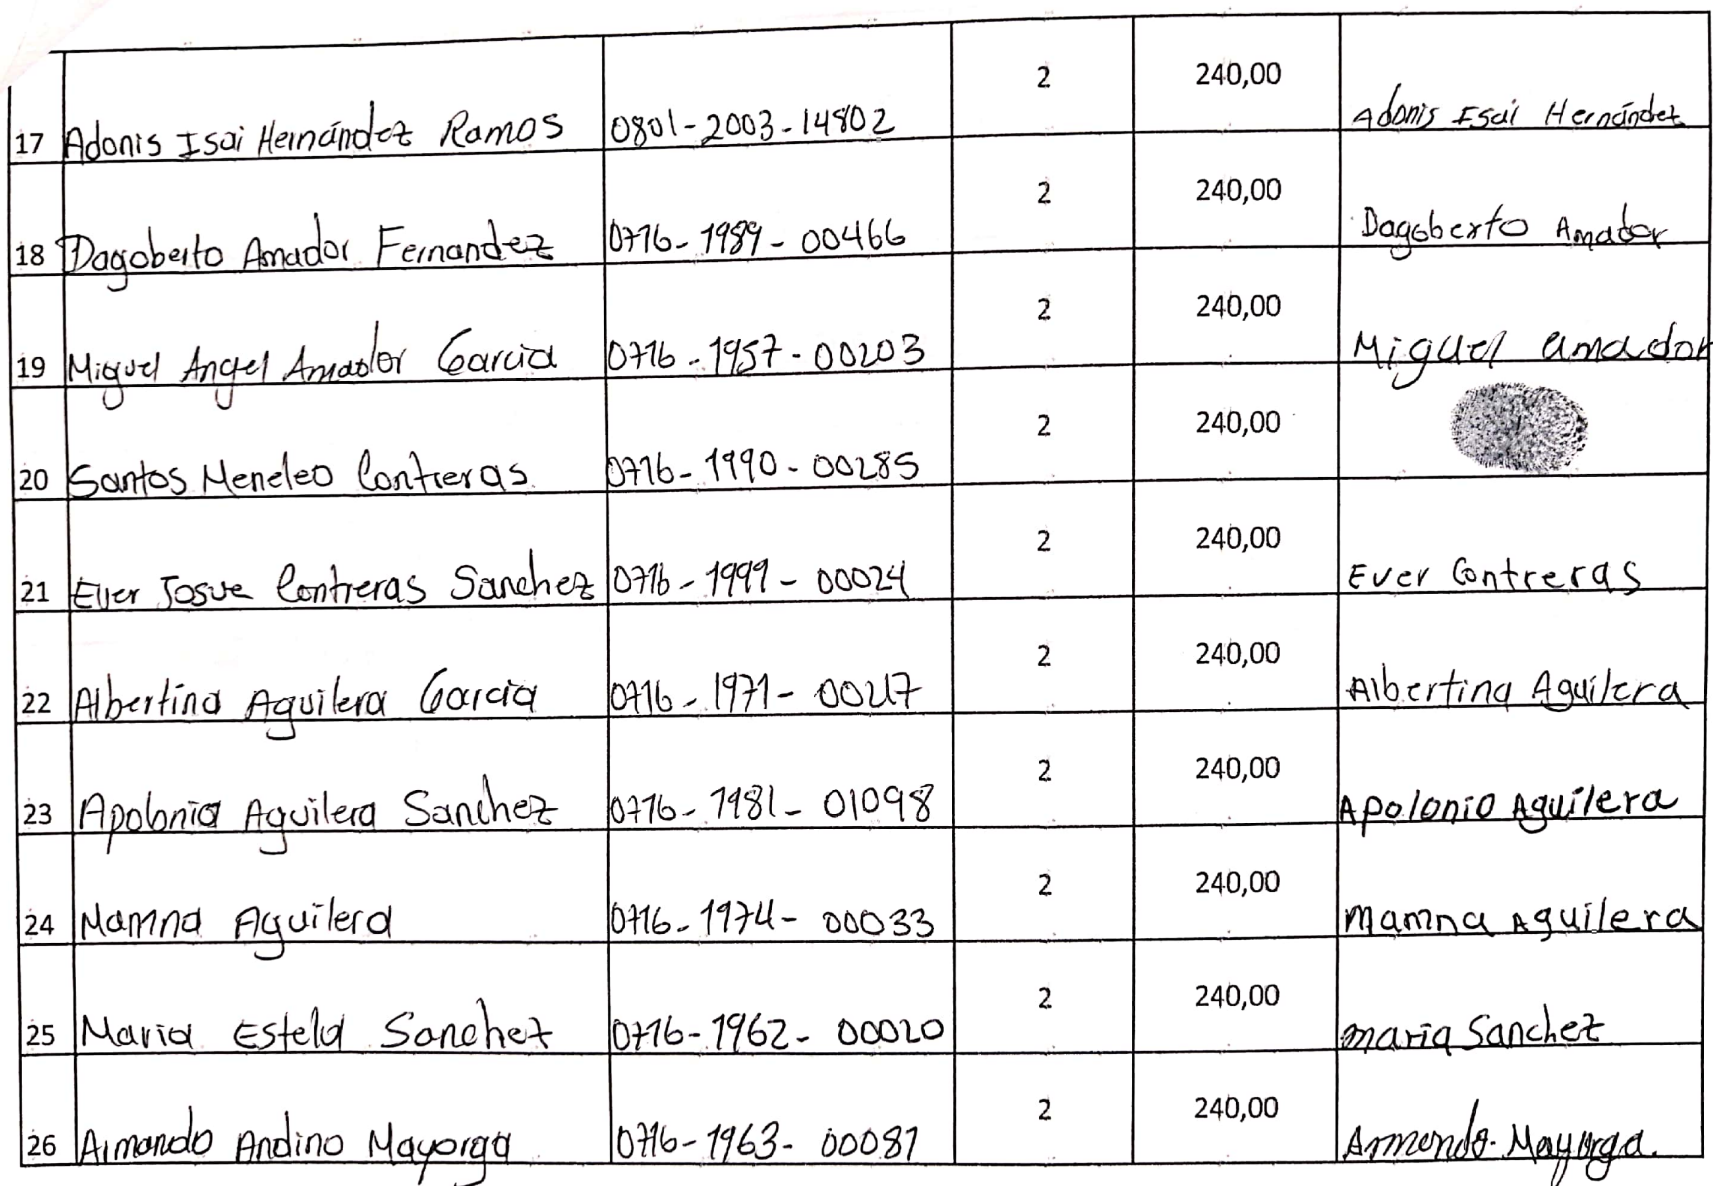 17 Adonis Isai Hernández Ramos 0801-2003-14802 2 240,00 Adonis Isai Hernández
18 Dagoberto Amador Fernandez 0716-1989-00466 2 240,00 Dagoberto Amador
19 Miguel Angel Amador Garcia 0716-1957-00203 2 240,00 Miguel amador
20 Santos Meneleo Contreras 0716-1990-00285 2 240,00
21 Ever Josue Contreras Sanchez 0716-1999-00024 2 240,00 Ever Contreras
22 Albertina Aguilera Garcia 0716-1971- 2 240,00 Albertina Aguilera
23 Apolonia Aguilera Sanchez 0716-1981-01098 2 240,00 Apolonio Aguilera
24 Mamna Aguilera 0716-1974-00033 2 240,00 Mamna Aguilera
25 Maria Estela Sanchez 0716-1962-00020 2 240,00 maria Sanchez
26 Armando Andino Mayorga 0716-1963-00081 2 240,00 Armando Mayorga.